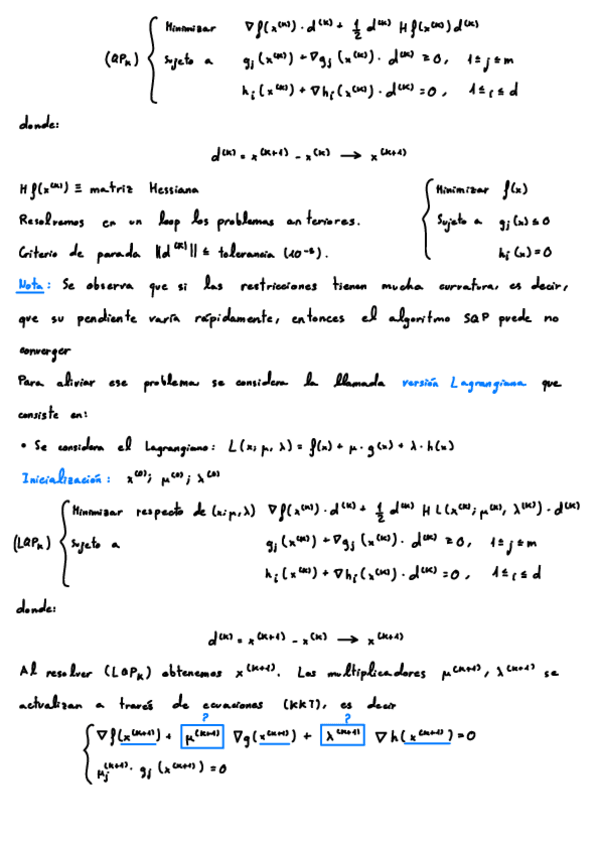 (QPₖ) { Minimizar ∇f(x⁽ᵏ⁾)·d⁽ᵏ⁾ + 1/2 d⁽ᵏ⁾ Hf(x⁽ᵏ⁾)d⁽ᵏ⁾
Sujeto a gⱼ(x⁽ᵏ⁾) + ∇gⱼ(x⁽ᵏ⁾)· d⁽ᵏ⁾ ≤ 0, 1≤j≤m
hᵢ(x⁽ᵏ⁾) + ∇hᵢ(x⁽ᵏ⁾)· d⁽ᵏ⁾ = 0, 1≤i≤d
donde:
d⁽ᵏ⁾ = x⁽ᵏ⁺¹⁾ - x⁽ᵏ⁾ → x⁽ᵏ⁺¹⁾
Hf(x⁽ᵏ⁾) ≡ matriz Hessiana { Minimizar f(x)
Resolvemos en un loop los problemas anteriores. Sujeto a gⱼ(x) ≤ 0
Criterio de parada ||d⁽ᵏ⁾|| ≤ tolerancia (10⁻⁸). hᵢ(x) = 0
Nota: Se observa que si las restricciones tienen mucha curvatura, es decir,
que su pendiente varía rápidamente, entonces el algoritmo SQP puede no
converger
Para aliviar ese problema se considera la llamada versión Lagrangiana que
consiste en:
• Se considera el Lagrangiano: L(x; μ, λ) = f(x) + μ·g(x) + λ·h(x)
Inicialización: x⁽⁰⁾; μ⁽⁰⁾; λ⁽⁰⁾
(LQPₖ) { Minimizar respecto de (x;μ,λ) ∇f(x⁽ᵏ⁾)·d⁽ᵏ⁾ + 1/2 d⁽ᵏ⁾ HL(x⁽ᵏ⁾; μ⁽ᵏ⁾, λ⁽ᵏ⁾)·d⁽ᵏ⁾
Sujeto a gⱼ(x⁽ᵏ⁾) + ∇gⱼ(x⁽ᵏ⁾)· d⁽ᵏ⁾ ≤ 0, 1≤j≤m
hᵢ(x⁽ᵏ⁾) + ∇hᵢ(x⁽ᵏ⁾)· d⁽ᵏ⁾ = 0, 1≤i≤d
donde:
d⁽ᵏ⁾ = x⁽ᵏ⁺¹⁾ - x⁽ᵏ⁾ → x⁽ᵏ⁺¹⁾
Al resolver (LQPₖ) obtenemos x⁽ᵏ⁺¹⁾. Los multiplicadores μ⁽ᵏ⁺¹⁾, λ⁽ᵏ⁺¹⁾ se
actualizan a través de ecuaciones (KKT), es decir
? ?
{ ∇f(x⁽ᵏ⁺¹⁾) + μ⁽ᵏ⁺¹⁾ ∇g(x⁽ᵏ⁺¹⁾) + λ⁽ᵏ⁺¹⁾ ∇h(x⁽ᵏ⁺¹⁾) = 0
μⱼ⁽ᵏ⁺¹⁾· gⱼ(x⁽ᵏ⁺¹⁾) = 0